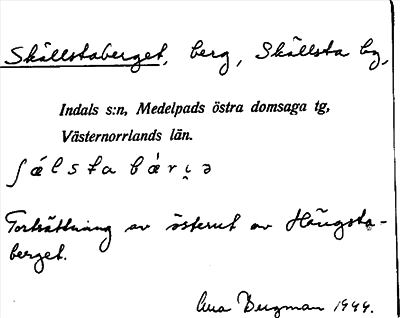 Skällstaberget, berg, Skällsta by,
Indals s:n, Medelpads östra domsaga tg,
Västernorrlands län.
ʃǽlsta bǽri̯ə
Fortsättning av österut av Haugsta-
berget.
Bergman 1944.